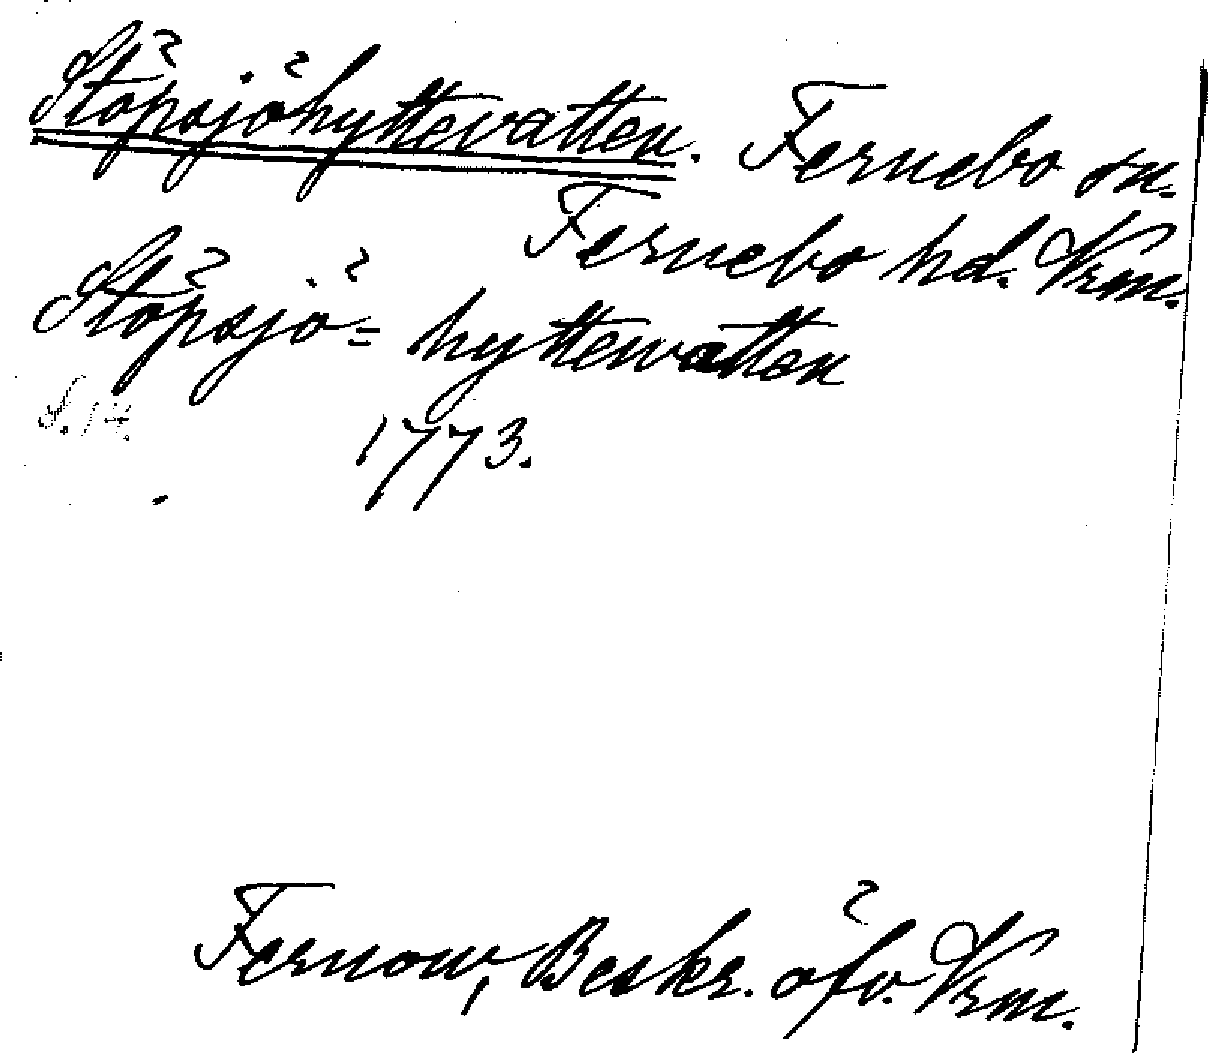 Stöpsjöhyttevatten. Fernebo sn.
Fernebo hd. Vrm.
Stöpsjö= hyttewatten
S. 14.
1773.
Fernow, Beskr. öfv. Vrm.